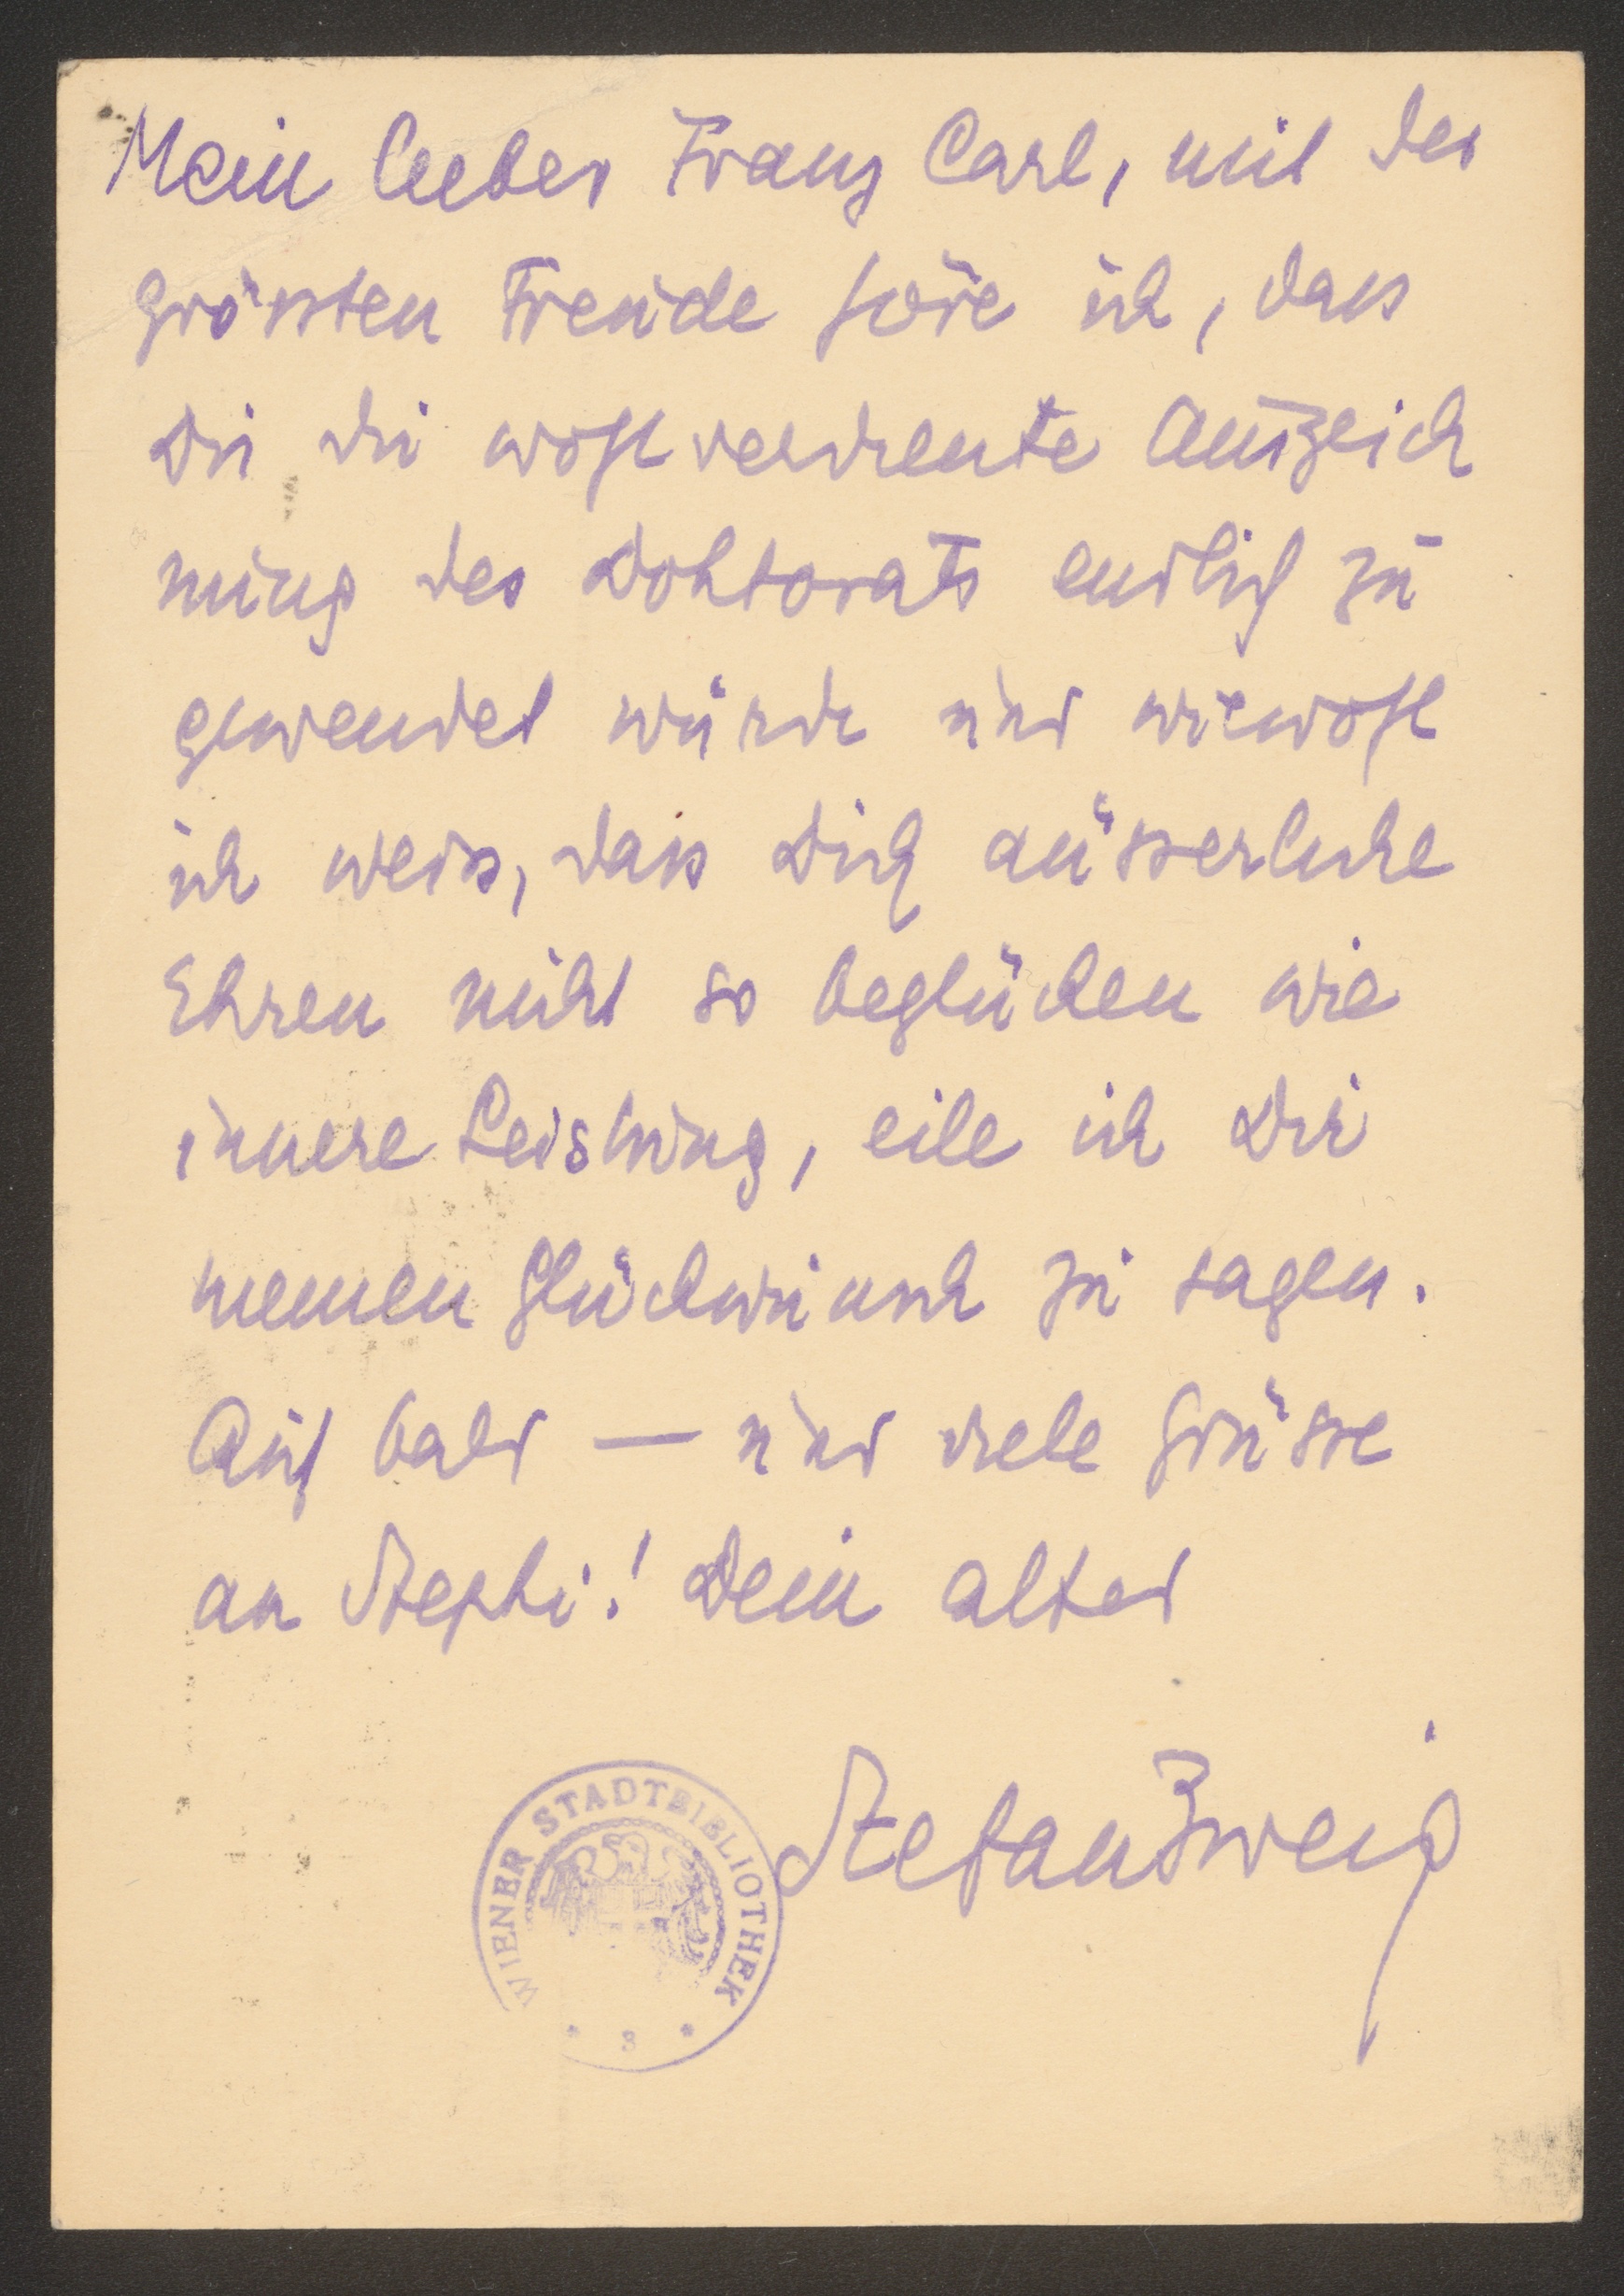 Mein lieber Franz Carl, mit der
grössten Freude höre ich, dass
Dir die wohlverdiente Auszeich
nung des Doktorats endlich zu
gewendet wurde und wiewohl
ich weiss, dass Dich äusserliche
Ehren nicht so beglücken wie
innere Leistung, eile ich Dir
meinen Glückwunsch zu sagen.
Auf bald — und viele Grüsse
an Stephi! Dein alter
Stefan Zweig
WIENER STADTBIBLIOTHEK
* 3 *